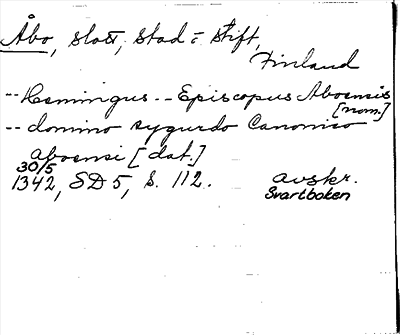 Åbo, slott, stad o Stift,
Finland
-- Hemingus -- Episcopus Aboensis
[nom.]
-- domino sygurdo Canonico
aboensi [dat.]
30/5
1342, SD 5, s. 112. avskr.
Svartboken